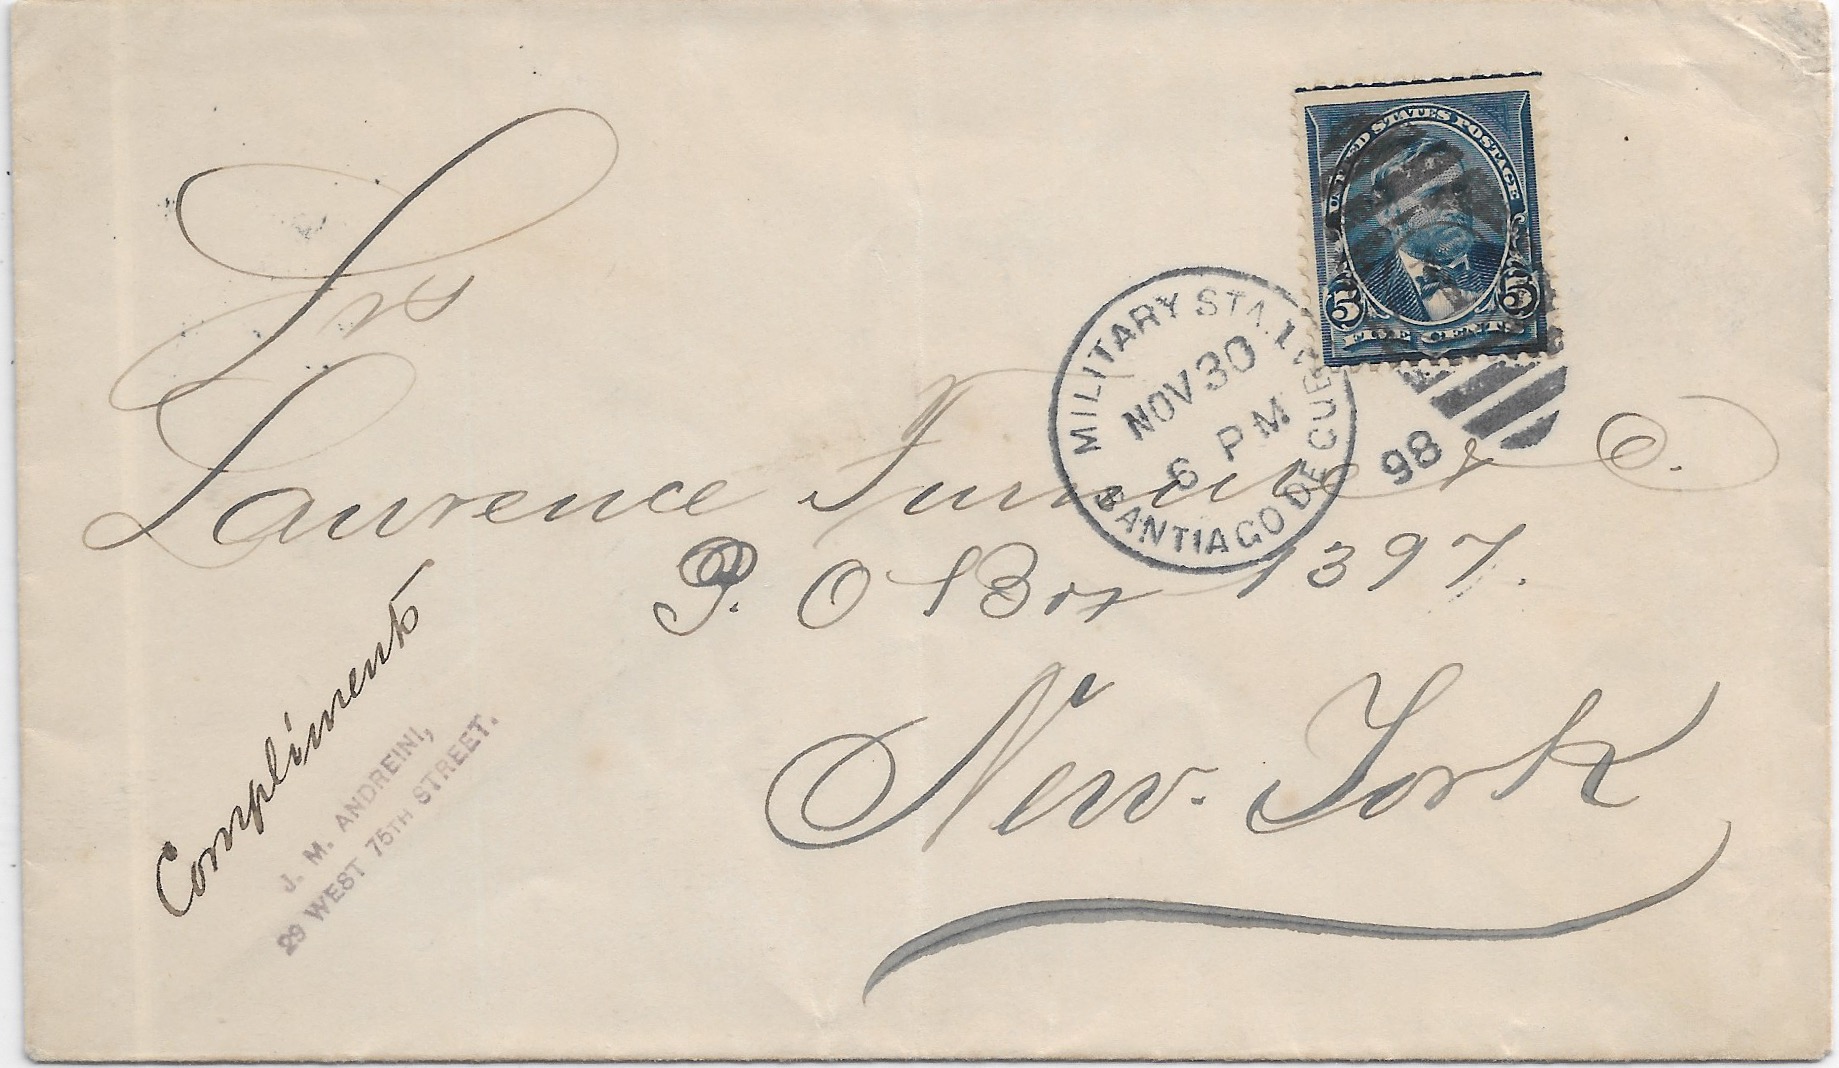 UNITED STATES POSTAGE
5 5
FIVE CENTS
MILITARY STA. 1
NOV 30
6 PM
98
SANTIAGO DE CUBA
Srs
Laurence Turnure & Co.
P. O Box 1397.
New York
Compliments
J. M. ANDREINI,
29 WEST 75TH STREET.